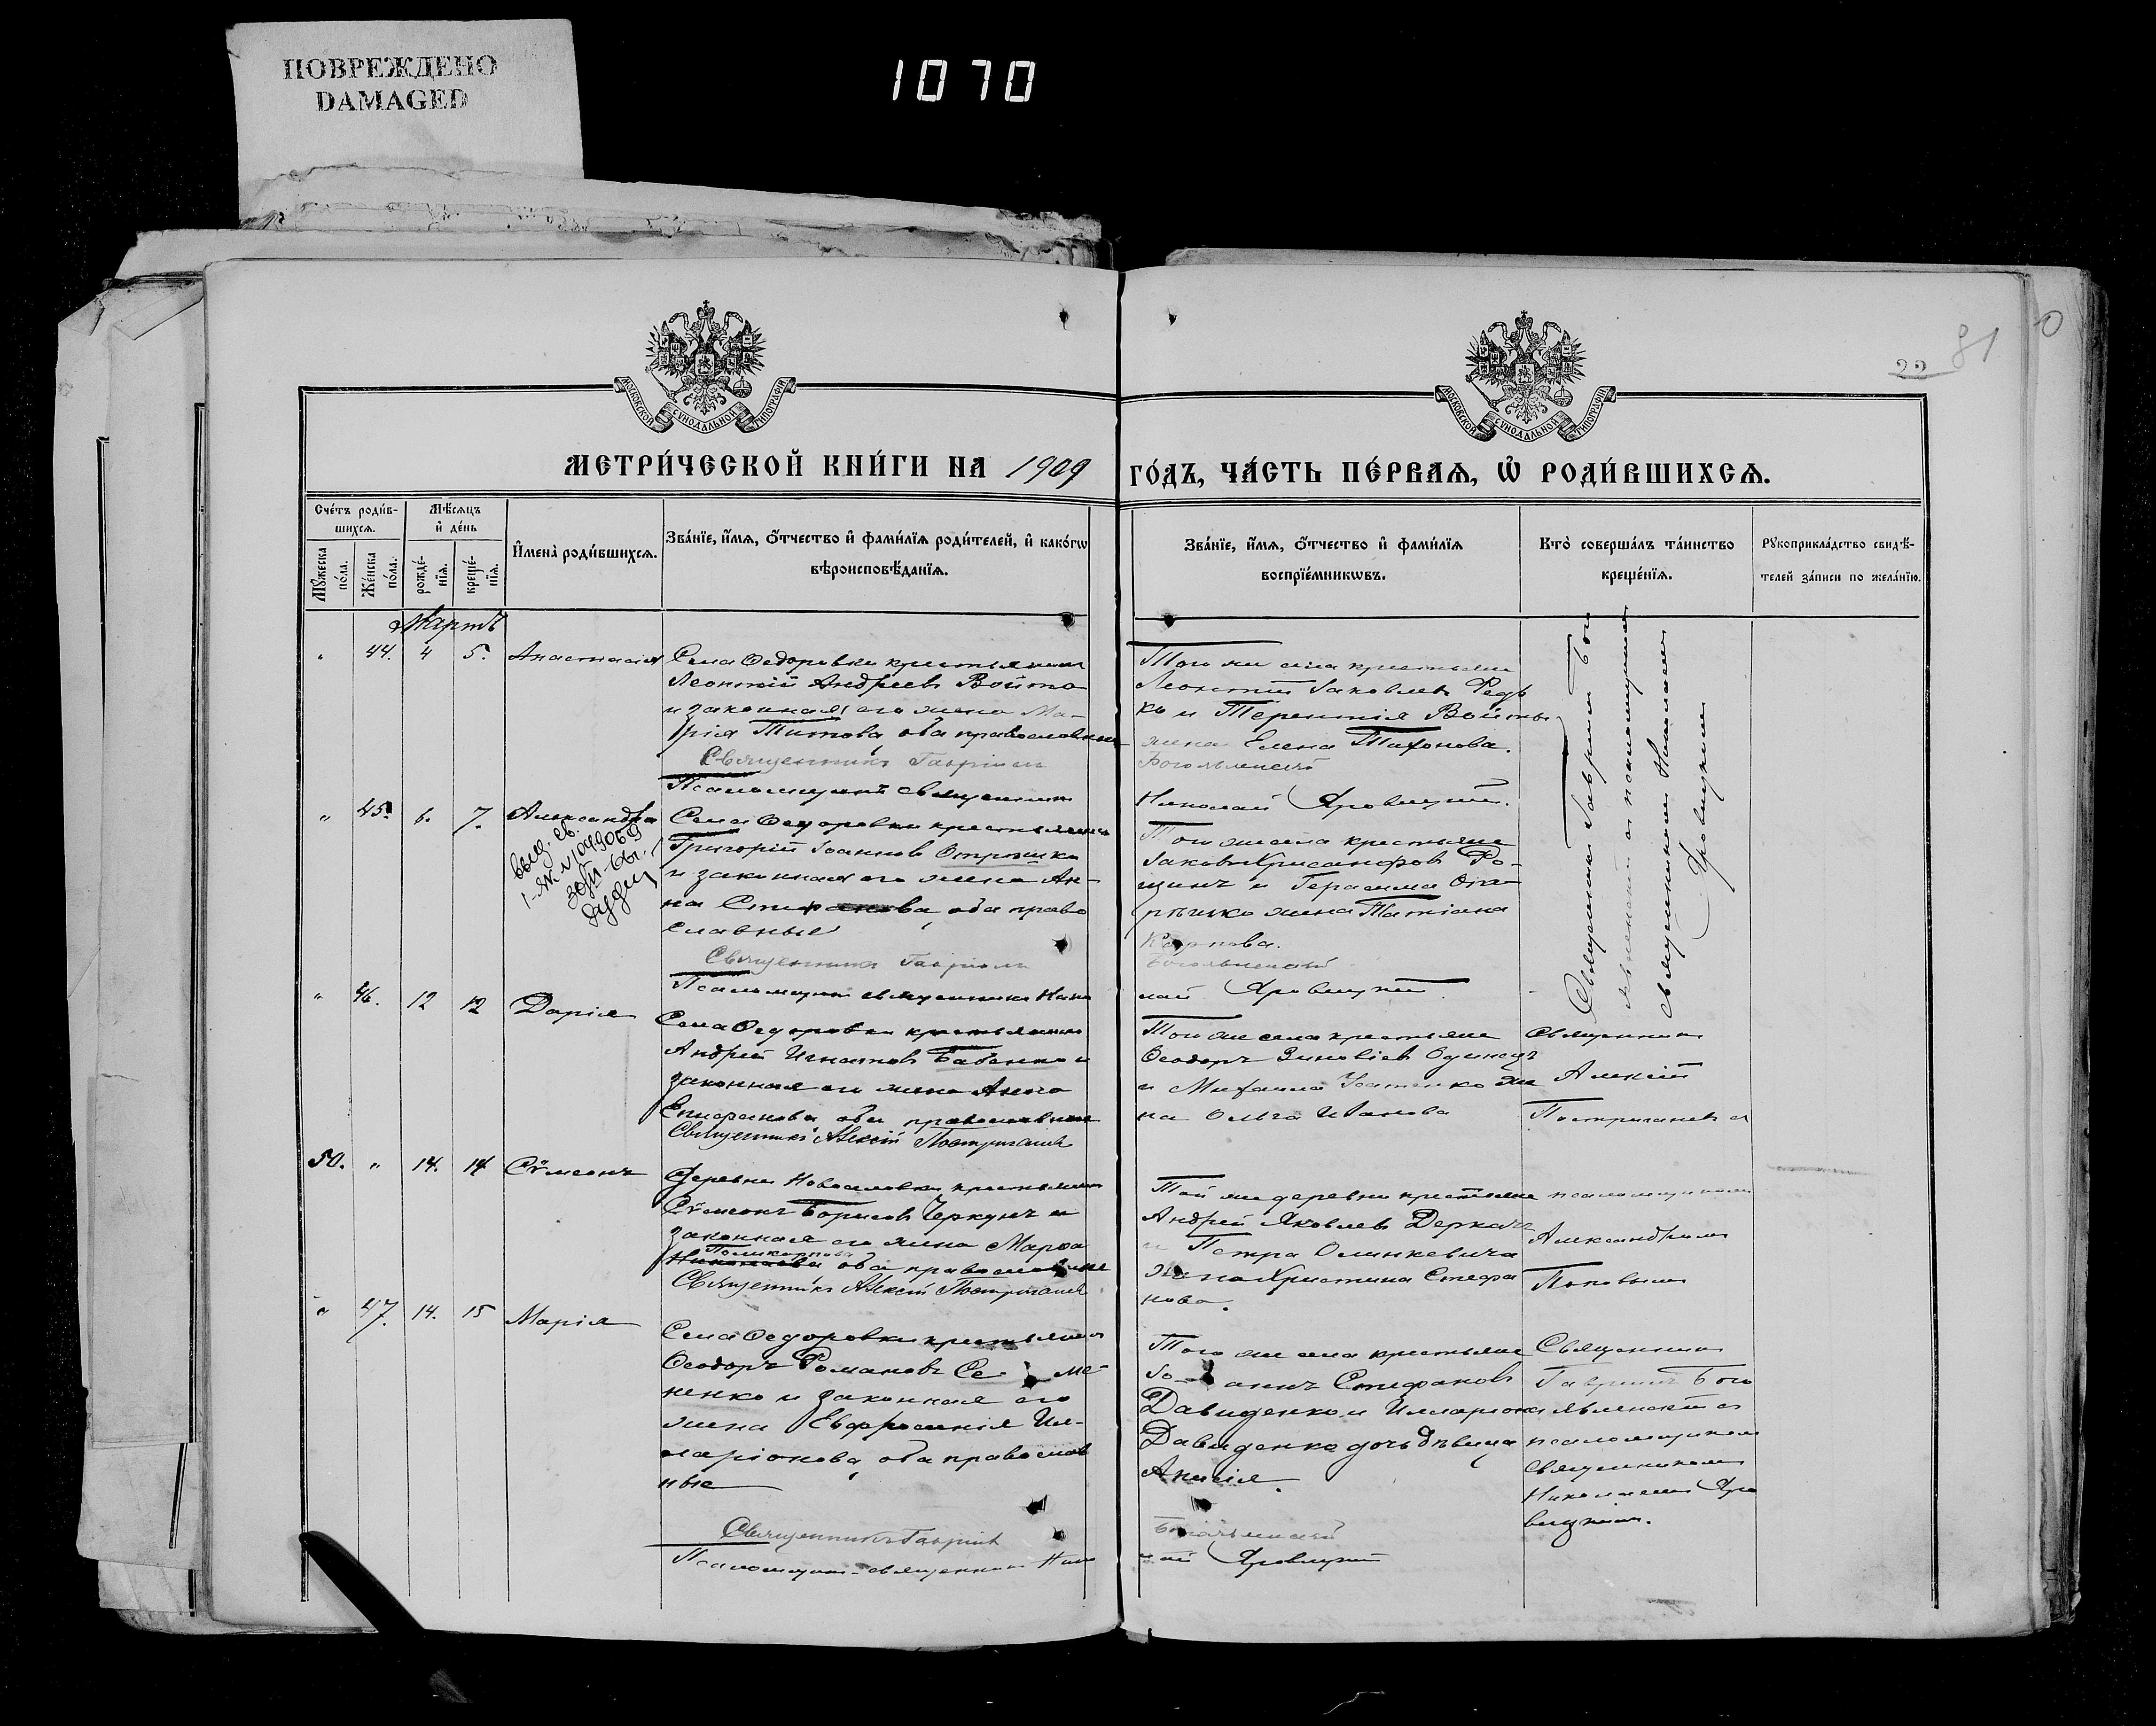 ПОВРЕЖДЕНО
DAMAGED
1070
22 81
0
МОСКОВСКОЙ СѴНОДАЛЬНОЙ ТИПОГРАФІИ
МОСКОВСКОЙ СѴНОДАЛЬНОЙ ТИПОГРАФІИ
МЕТРИ́ЧЕСКОЙ КНИ́ГИ НА 1909 ГО́ДЪ, ЧА́СТЬ ПЕ́РВАѦ, Ѡ҆ РОДИ́ВШИХСѦ.
Сче́тъ роди́в-
шихсѧ.
Мꙋ́жеска по́ла.
Же́нска по́ла.
Мѣ́сѧцъ
и҆ де́нь
рожде́-
нїѧ.
креще́-
нїѧ.
И҆мена̀ роди́вшихсѧ.
Зва́нїе, и҆́мѧ, ѻ҆́тчество и҆ фами́лїѧ роди́телей, и҆ како́гѡ
вѣроисповѣ́данїѧ.
Зва́нїе, и҆́мѧ, ѻ҆́тчество и҆ фами́лїѧ
воспрїе́мникѡвъ.
Кто̀ соверша́лъ та́инство
креще́нїѧ.
Рꙋкоприкла́дство свидѣ́-
телей за́писи по жела́нїю.
Мартъ
" 44. 4 5. Анастасія
Села Ѳедоровки крестьянин
Леонтій Андреевъ Войто
и законная его жена Ма-
рія Титова, оба православные
Священникъ Гавріилъ
Псаломщикъ священникъ
Того же села крестьяне
Леонтій Іаковлевъ Редь
ко и Терентія Войты
жена Елена Тихонова.
Богоявленскій
Николай Яровицкій.
Священник Гавріил Бого
явленскій с псаломщиком
священником Николаем
Яровицким
" 45. 6. 7. Александра
выд. св.
1-ЯЖ №1099069
Села Ѳедоровки крестьянин
Григорій Іоаннов Отрошко
и законная его жена Ан-
на Стефанова, оба право
славные
Священникъ Гавріилъ
Псаломщик священникъ Нико
Того же села крестьяне
Іаковъ Хрисанфов Ро-
щин и Герасима
жена Татіана
Карпова.
Богоявленскій
лай Яровицкій
" 46. 12 12 Дарія
Села Ѳедоровки крестьянин
Андрей Игнатов Бабенко и
законная его жена Анна
Епифанова, оба православные
Священникъ Алексій Постригачев
Того же села крестьяне
Ѳеодоръ Зиновіев Одинец
и Михаила жe
на Ольга Иванова
Священник
Алексій
Постригачев с
50. " 14. 14 Сѵмеонъ
Деревни Новоселовки крестьянин
Сѵмеонъ Борисов Черкун и
законная его жена Марѳа
Поликарпова
Николаева оба православные
Священникъ Алексій Постригачев
Той же деревни крестьяне
Андрей Яковлев Деркач
и Петра Олинкевича
жена Христина Стефа
нова.
псаломщиком
Александром
Поповым
" 47. 14. 15 Марія
Села Ѳедоровки крестьянин
Ѳеодоръ Романов Се- ме-
ненко и законная его
жена Евфросинія Ил-
ларіонова, оба православ
ные
Священникъ Гавріилъ
Псаломщик-священник Нико
Того же села крестьяне
Іо- аннъ Стефанов
Давиденко и Илларіона
Давиденко дочь девица
Анисія.
Богоявленскій
лай Яровицкій
Священник
Гавріил Бого
явленскій с
псаломщиком
священником
Николаем Яро
вицким.